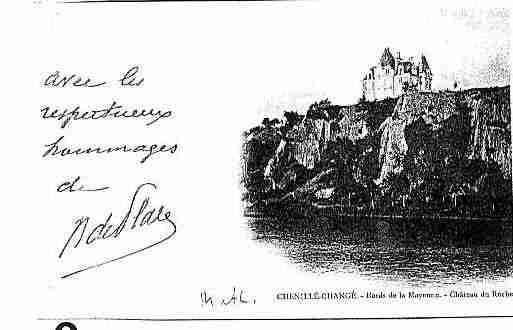 avec les
respectueux
hommages
de
CHENILLÉ-CHANGÉ. - Bords de la Mayenne. - Château du Roche